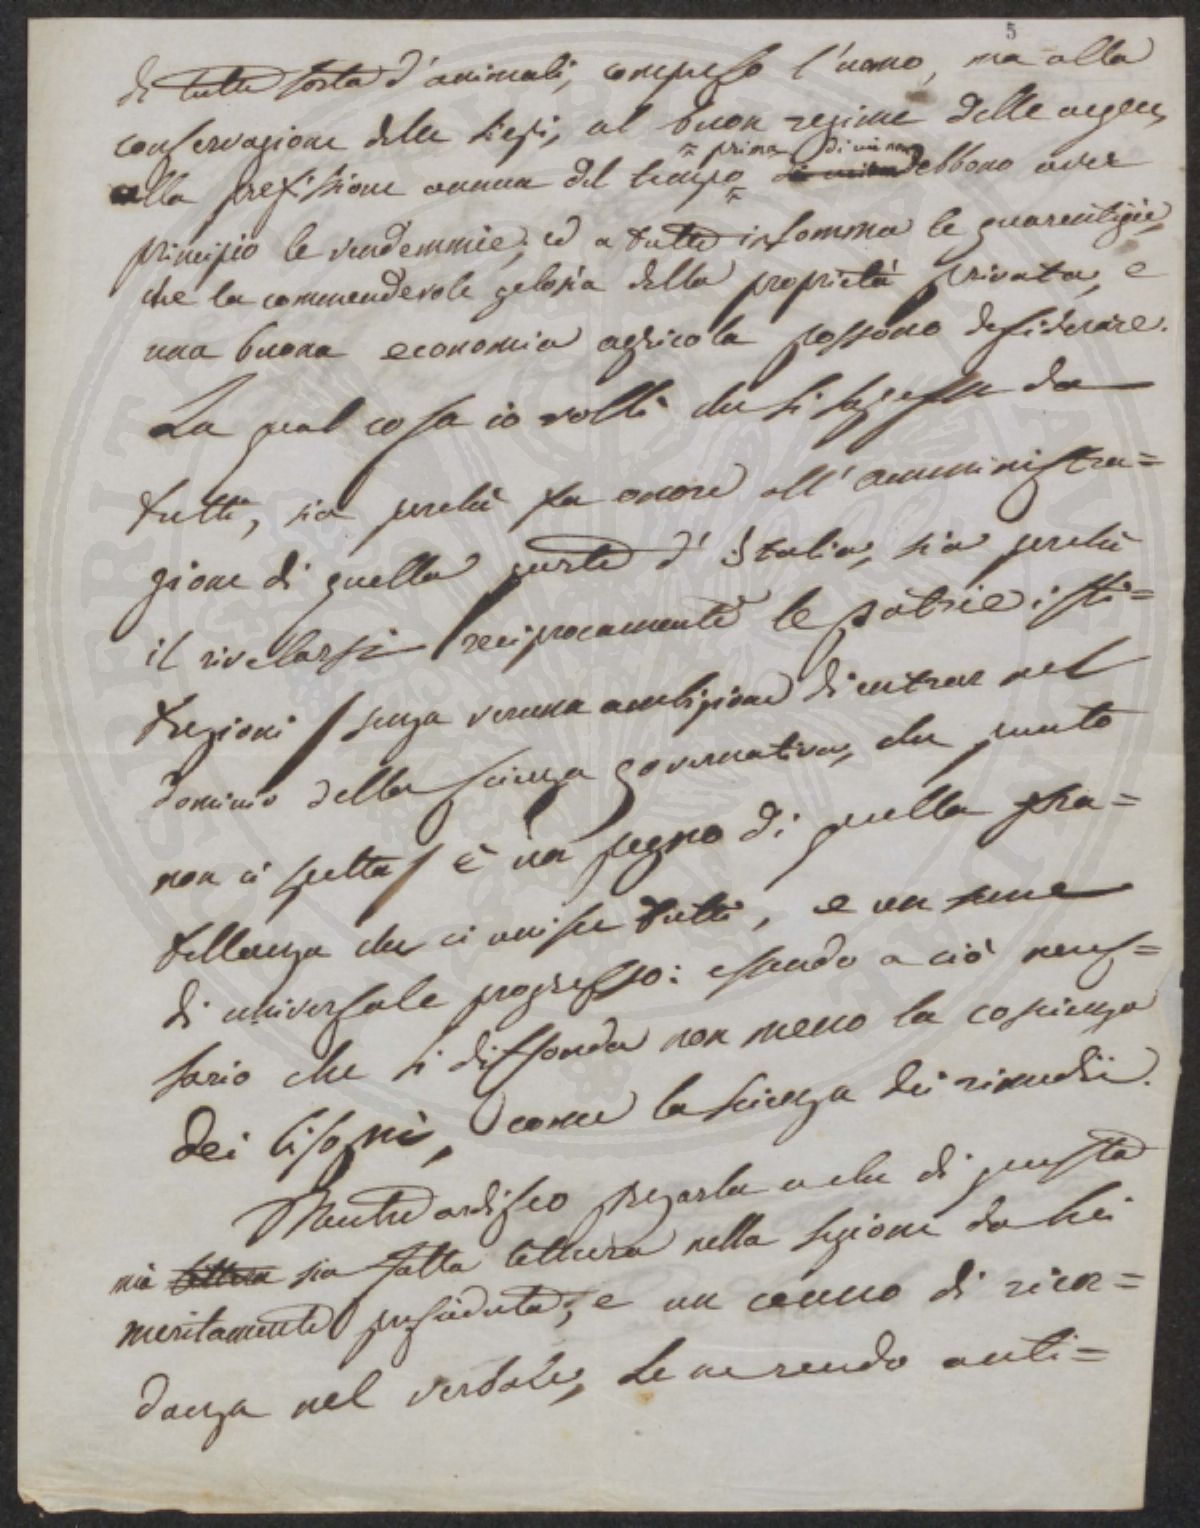 5
di tutte sorta d'animali, compreso l'uomo, ma alla
conservazione delle siepi, al buon regime delle acque,
prima di cui non
alla prefissione annua del tempo debbono aver
principio le vendemmie, ed a tutte insomma le guarentigie,
che la commendevole gelosia della proprietà privata, e
una buona economia agricola possono desiderare.
La qual cosa io volli che si sapesse da
tutti, sia perchè fa onore all'amministra=
zione di quella parte d'Italia, sia perchè
il rivelarsi reciprocamente le patrie isti=
tuzioni / senza veruna ambizione di entrar nel
dominio della scienza governativa, che punto
non ci spetta / è un pegno di quella fra=
tellanza che ci unisce tutti, e un seme
di universale progresso: essendo a ciò neces=
sario che si diffonda non meno la coscienza
dei bisogni, come la scienza dei rimedii.
Mentre ardisco pregarla a che di questa
mia lettera sia fatta lettura nella sezione da Lei
meritamente presieduta, e un cenno di ricor=
danza nel verbale, Le ne rendo anti=